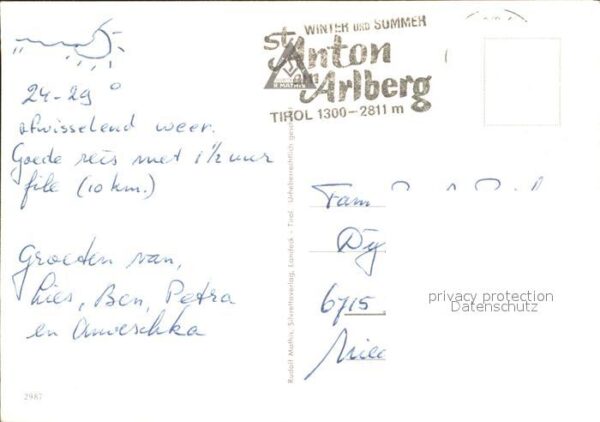 WINTER UND SOMMER
St. Anton
am Arlberg
TIROL 1300-2811 m
R MATHIS
24-29°
afwisselend weer.
Goede reis met 1½ uur
file (10 km.)
Groeten van,
Lies, Ben, Petra
en Anneschka
Fam
Dij
6715
privacy protection
Datenschutz
Rudolf Mathis, Silvrettaverlag, Landeck - Tirol Urheberrechtlich
2987